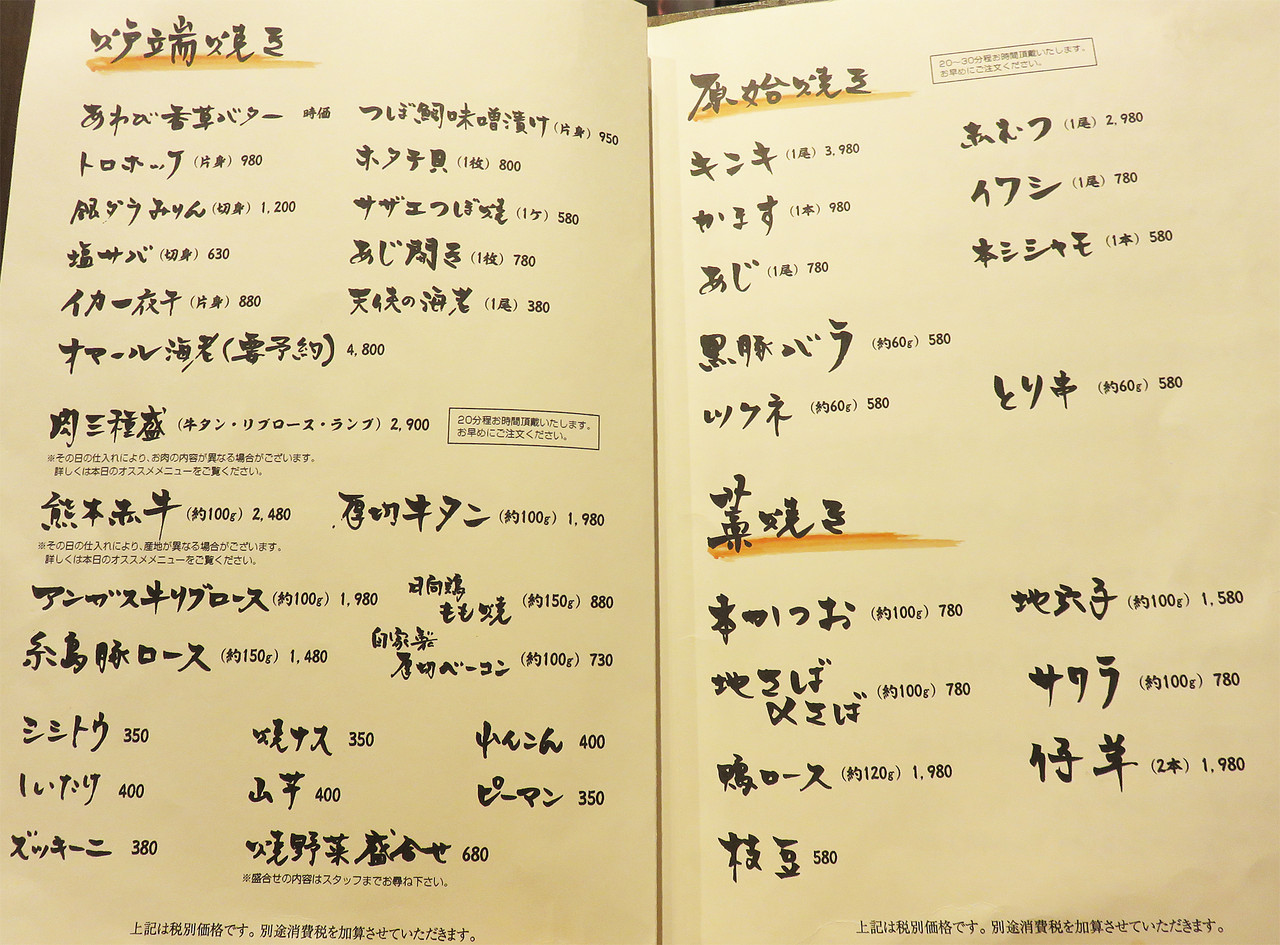 炉端焼き
あわび香草バター 時価
つぼ鯛味噌漬け (片身) 950
トロホッケ (片身) 980
ホタテ貝 (1枚) 800
銀ダラみりん (切身) 1,200
サザエつぼ焼 (1ケ) 580
塩サバ (切身) 630
あじ開き (1枚) 780
イカ一夜干 (片身) 880
天使の海老 (1尾) 380
オマール海老(要予約) 4,800
肉三種盛 (牛タン・リブロース・ランプ) 2,900
20分程お時間頂戴いたします。
お早めにご注文ください。
※その日の仕入れにより、お肉の内容が異なる場合がございます。
詳しくは本日のオススメメニューをご覧ください。
熊本赤牛 (約100g) 2,480
厚切牛タン (約100g) 1,980
※その日の仕入れにより、産地が異なる場合がございます。
詳しくは本日のオススメメニューをご覧ください。
アンガス牛リブロース (約100g) 1,980
日向鶏
もも焼 (約150g) 880
糸島豚ロース (約150g) 1,480
自家製
厚切ベーコン (約100g) 730
シシトウ 350
焼ナス 350
れんこん 400
しいたけ 400
山芋 400
ピーマン 350
ズッキーニ 380
焼野菜盛合せ 680
※盛合せの内容はスタッフまでお尋ね下さい。
上記は税別価格です。別途消費税を加算させていただきます。
原始焼き
20〜30分程お時間頂戴いたします。
お早めにご注文ください。
キンキ (1尾) 3,980
赤むつ (1尾) 2,980
かます (1本) 980
イワシ (1尾) 780
あじ (1尾) 780
本シシャモ (1本) 580
黒豚バラ (約60g) 580
ツクネ (約60g) 580
とり串 (約60g) 580
藁焼き
本かつお (約100g) 780
地穴子 (約100g) 1,580
地さば
〆さば (約100g) 780
サワラ (約100g) 780
鴨ロース (約120g) 1,980
仔羊 (2本) 1,980
枝豆 580
上記は税別価格です。別途消費税を加算させていただきます。